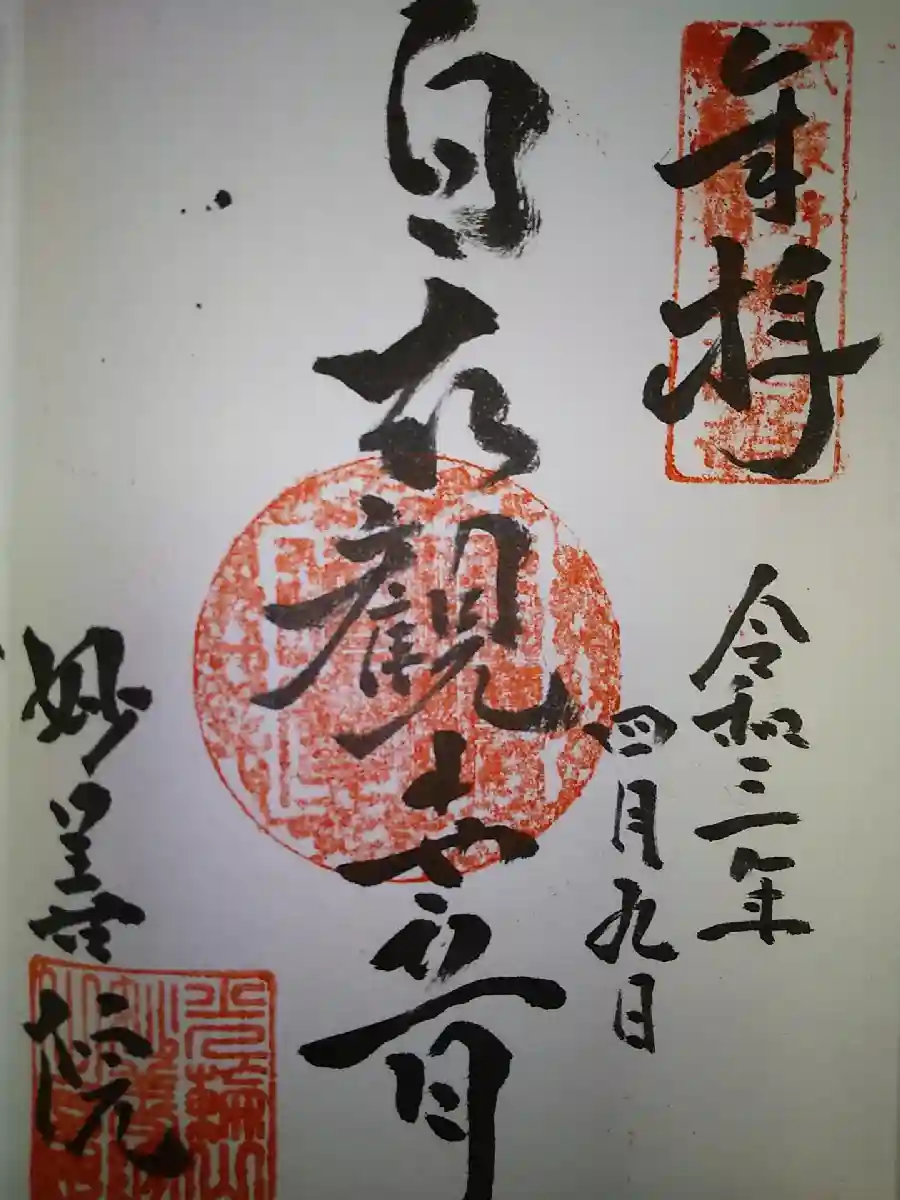 奉拝
令和三年
四月九日
白衣観世音
妙善院